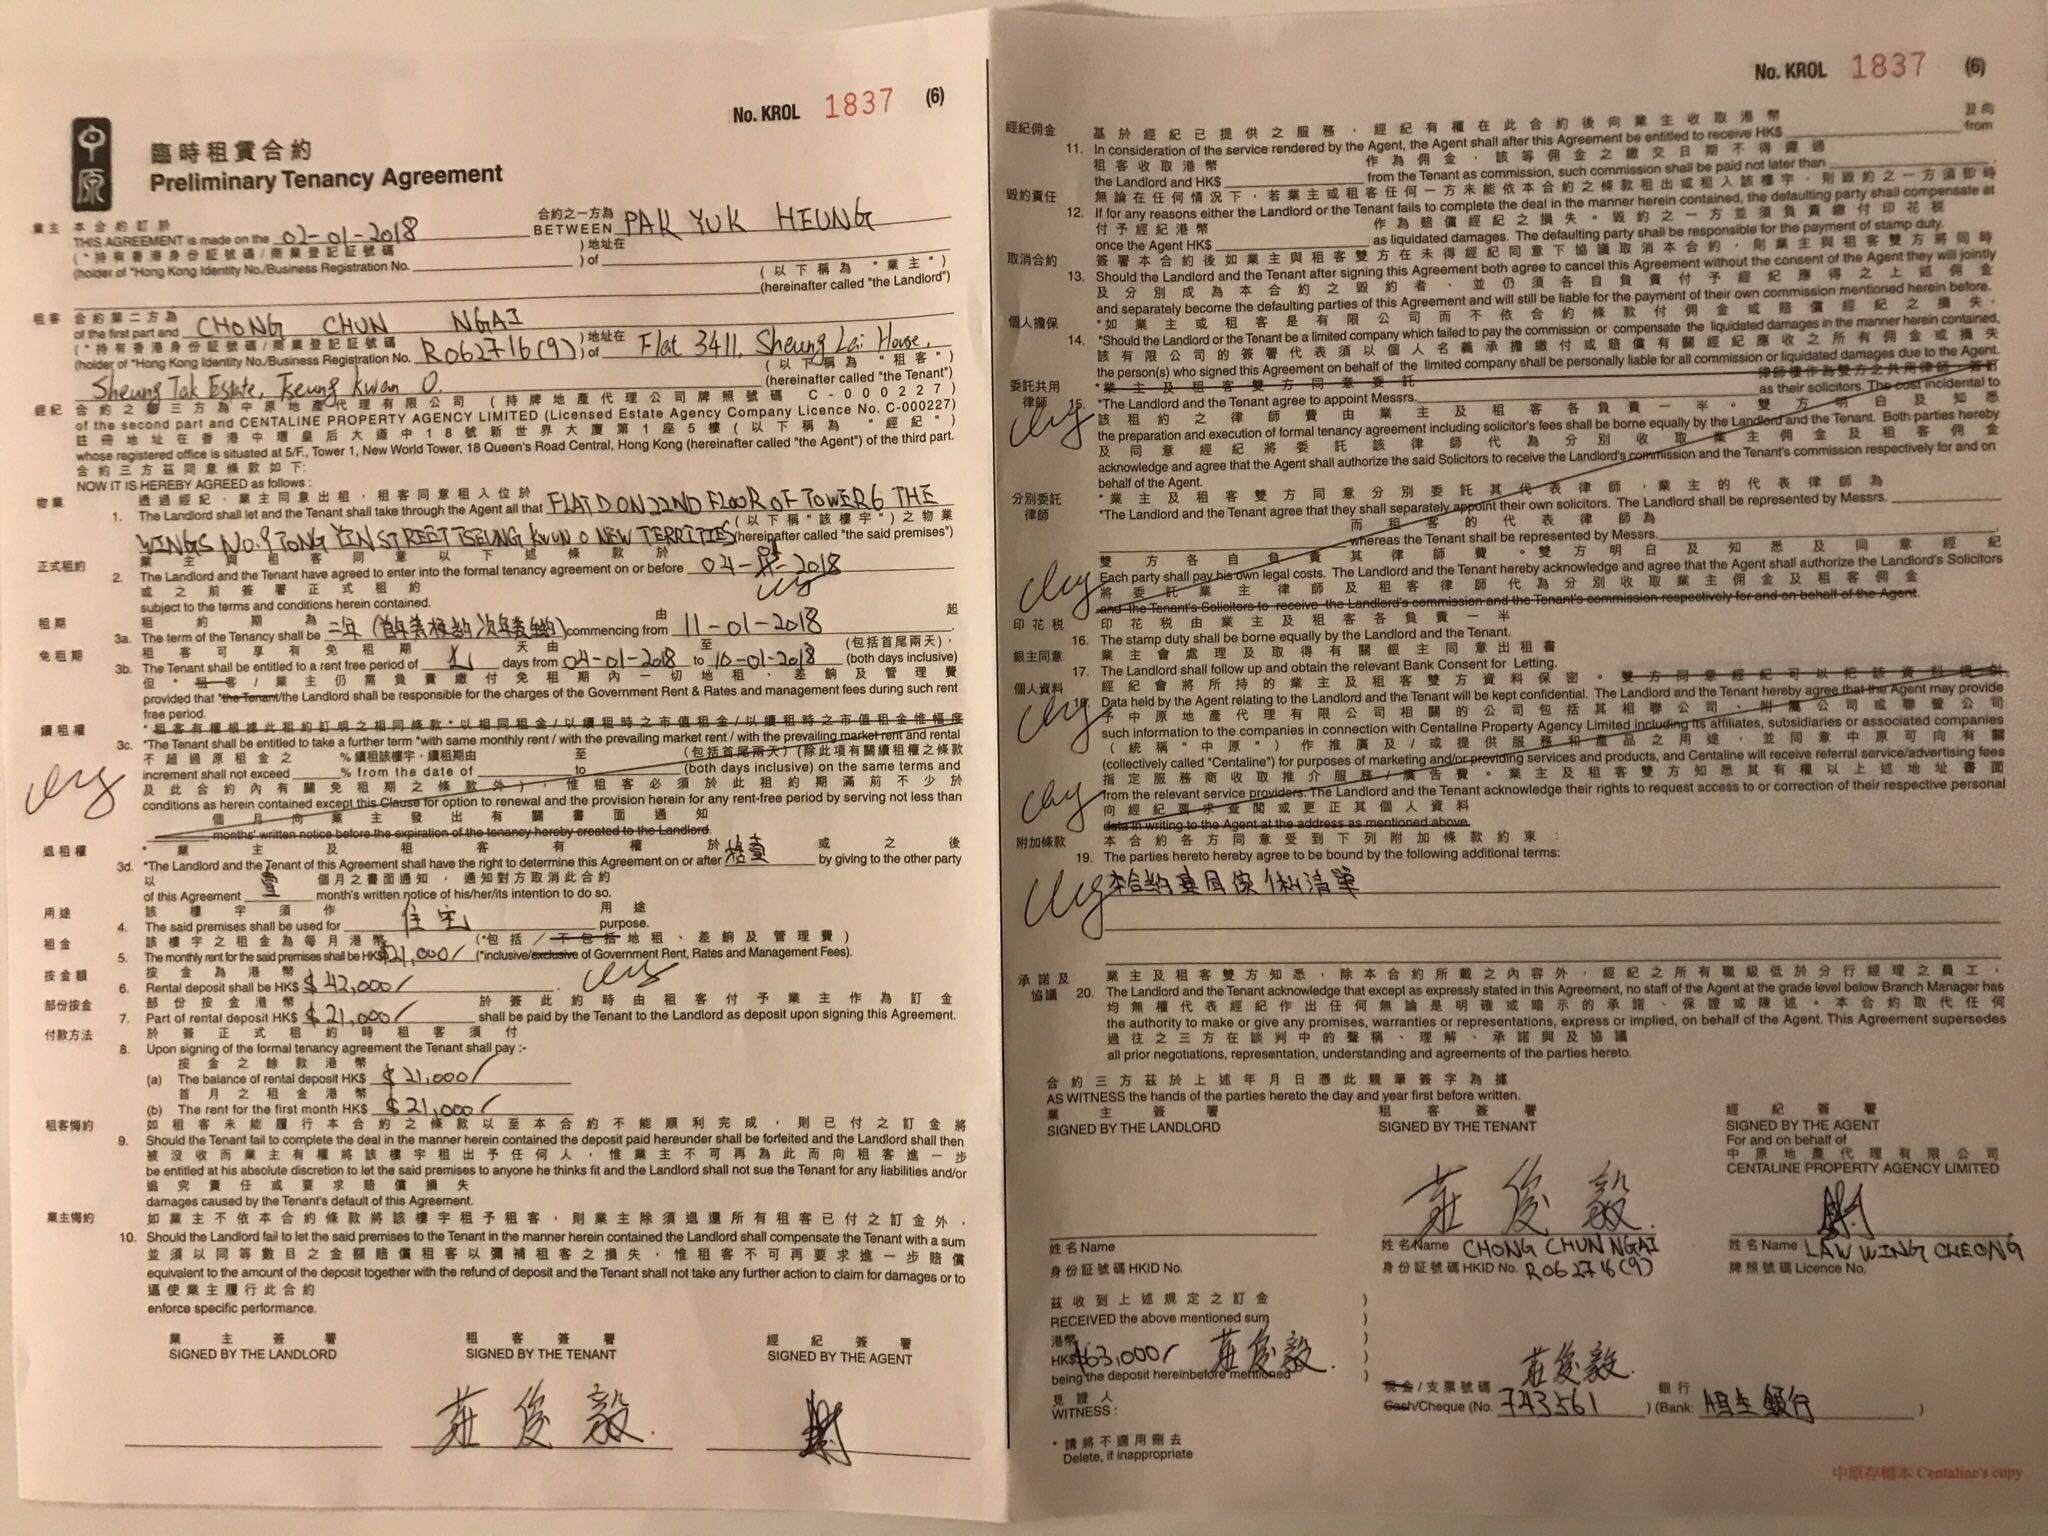 No. KROL 1837 (6)
中原
臨時租賃合約
Preliminary Tenancy Agreement
業主 本合約訂於 合約之一方為
THIS AGREEMENT is made on the 02-01-2018 BETWEEN PAK YUK HEUNG
(*持有香港身份証號碼/商業登記証號碼 )地址在
(holder of *Hong Kong Identity No./Business Registration No. ) of
(以下稱為"業主")
(hereinafter called "the Landlord")
租客 合約第二方為
of the first part and CHONG CHUN NGAI
(*持有香港身份証號碼/商業登記証號碼 )地址在
(holder of *Hong Kong Identity No./Business Registration No. R062716(9) ) of Flat 3411, Sheung Lai House,
(以下稱為"租客")
Sheung Tak Estate, Tseung Kwan O. (hereinafter called "the Tenant")
經紀 合約之第三方為中原地產代理有限公司(持牌地產代理公司牌照號碼 C-000227)
of the second part and CENTALINE PROPERTY AGENCY LIMITED (Licensed Estate Agency Company Licence No. C-000227)
註冊地址在香港中環皇后大道中18號新世界大廈第1座5樓(以下稱為"經紀")
whose registered office is situated at 5/F., Tower 1, New World Tower, 18 Queen's Road Central, Hong Kong (hereinafter called "the Agent") of the third part.
合約三方茲同意條款如下:
NOW IT IS HEREBY AGREED as follows :
物業 透過經紀,業主同意出租,租客同意租入位於
1. The Landlord shall let and the Tenant shall take through the Agent all that FLAT D ON 22ND FLOOR OF TOWER 6 THE
(以下稱"該樓宇")之物業
WINGS NO.9 TONG YIN STREET TSEUNG KWUN O NEW TERRITIES (hereinafter called "the said premises")
正式租約 業主與租客同意以下述條款於
2. The Landlord and the Tenant have agreed to enter into the formal tenancy agreement on or before 04-01-2018
或之前簽署正式租約
subject to the terms and conditions herein contained.
租期 租約期為 由 起
3a. The term of the Tenancy shall be commencing from 11-01-2018
免租期 租客可享有免租期 天由 至 (包括首尾兩天),
3b. The Tenant shall be entitled to a rent free period of 七 days from 04-01-2018 to 10-01-2018 (both days inclusive)
但*租客/業主仍需負責繳付免租期內一切地租、差餉及管理費
provided that *the Tenant/the Landlord shall be responsible for the charges of the Government Rent & Rates and management fees during such rent
free period.
續租權 *租客有權根據此租約訂明之相同條款*以相同租金/以續租時之市值租金/以續租時之市值租金惟幅度
3c. *The Tenant shall be entitled to take a further term *with same monthly rent / with the prevailing market rent / with the prevailing market rent and rental
不超過原租金之 %續租該樓宇,續租期由 至 (包括首尾兩天)(除此項有關續租權之條款
increment shall not exceed % from the date of to (both days inclusive) on the same terms and
及此合約內有關免租期之條款外),惟租客必須於此租約期滿前不少於
conditions as herein contained except this Clause for option to renewal and the provision herein for any rent-free period by serving not less than
個月向業主發出有關書面通知
months' written notice before the expiration of the tenancy hereby created to the Landlord.
退租權 *業主及租客有權於 或之後
3d. *The Landlord and the Tenant of this Agreement shall have the right to determine this Agreement on or after by giving to the other party
以 個月之書面通知,通知對方取消此合約
of this Agreement 壹 month's written notice of his/her/its intention to do so.
用途 該樓宇須作 用途
4. The said premises shall be used for 住宅 purpose.
租金 該樓宇之租金為每月港幣 (*包括/不包括地租、差餉及管理費)
5. The monthly rent for the said premises shall be HK$ $21,000/ (*inclusive/exclusive of Government Rent, Rates and Management Fees).
按金額 按金為港幣
6. Rental deposit shall be HK$ $42,000/ .
部份按金 部份按金港幣 於簽此約時由租客付予業主作為訂金
7. Part of rental deposit HK$ $21,000/ shall be paid by the Tenant to the Landlord as deposit upon signing this Agreement.
付款方法 於簽正式租約時租客須付
8. Upon signing of the formal tenancy agreement the Tenant shall pay :-
按金之餘款港幣
(a) The balance of rental deposit HK$ $21,000/
首月之租金港幣
(b) The rent for the first month HK$ $21,000/
租客悔約 如租客未能履行本合約之條款以至本合約不能順利完成,則已付之訂金將
9. Should the Tenant fail to complete the deal in the manner herein contained the deposit paid hereunder shall be forfeited and the Landlord shall then
被沒收而業主有權將該樓宇租出予任何人,惟業主不可再為此而向租客進一步
be entitled at his absolute discretion to let the said premises to anyone he thinks fit and the Landlord shall not sue the Tenant for any liabilities and/or
追究責任或要求賠償損失
damages caused by the Tenant's default of this Agreement.
業主悔約 如業主不依本合約條款將該樓宇租予租客,則業主除須退還所有租客已付之訂金外,
10. Should the Landlord fail to let the said premises to the Tenant in the manner herein contained the Landlord shall compensate the Tenant with a sum
並須以同等數目之金額賠償租客以彌補租客之損失,惟租客不可再要求進一步賠償
equivalent to the amount of the deposit together with the refund of deposit and the Tenant shall not take any further action to claim for damages or to
逼使業主履行此合約
enforce specific performance.
業主簽署 租客簽署 經紀簽署
SIGNED BY THE LANDLORD SIGNED BY THE TENANT SIGNED BY THE AGENT
莊俊毅
No. KROL 1837 (6)
經紀佣金 基於經紀已提供之服務,經紀有權在此合約後向業主收取港幣 及向
11. In consideration of the service rendered by the Agent, the Agent shall after this Agreement be entitled to receive HK$ from
租客收取港幣 作為佣金,該等佣金之繳交日期不得遲過
the Landlord and HK$ from the Tenant as commission, such commission shall be paid not later than .
毀約責任 無論在任何情況下,若業主或租客任何一方未能依本合約之條款租出或租入該樓宇,則毀約之一方須即時
12. If for any reasons either the Landlord or the Tenant fails to complete the deal in the manner herein contained, the defaulting party shall compensate at
付予經紀港幣 作為賠償經紀之損失。毀約之一方並須負責繳付印花稅
once the Agent HK$ as liquidated damages. The defaulting party shall be responsible for the payment of stamp duty.
取消合約 簽署本合約後如業主與租客雙方在未得經紀同意下協議取消本合約,則業主與租客雙方將同時
13. Should the Landlord and the Tenant after signing this Agreement both agree to cancel this Agreement without the consent of the Agent they will jointly
及分別成為本合約之毀約者,並仍須各自負責付予經紀應得之上述佣金
and separately become the defaulting parties of this Agreement and will still be liable for the payment of their own commission mentioned herein before.
個人擔保 *如業主或租客是有限公司而不依合約條款付佣金或賠償經紀之損失,
14. *Should the Landlord or the Tenant be a limited company which failed to pay the commission or compensate the liquidated damages in the manner herein contained,
該有限公司的簽署代表須以個人名義承擔繳付或賠償有關經紀應收之所有佣金或損失
the person(s) who signed this Agreement on behalf of the limited company shall be personally liable for all commission or liquidated damages due to the Agent.
委託共用律師 *業主及租客雙方同意委託 律師樓作為雙方之共用律師,簽訂
15. *The Landlord and the Tenant agree to appoint Messrs. as their solicitors. The cost incidental to
該租約之律師費由業主及租客各負責一半。雙方明白及知悉
the preparation and execution of formal tenancy agreement including solicitor's fees shall be borne equally by the Landlord and the Tenant. Both parties hereby
及同意經紀將委託該律師代為分別收取業主佣金及租客佣金
acknowledge and agree that the Agent shall authorize the said Solicitors to receive the Landlord's commission and the Tenant's commission respectively for and on
behalf of the Agent.
分別委託律師 *業主及租客雙方同意分別委託其代表律師,業主的代表律師為
*The Landlord and the Tenant agree that they shall separately appoint their own solicitors. The Landlord shall be represented by Messrs.
而租客的代表律師為
whereas the Tenant shall be represented by Messrs. .
雙方各自負責其律師費。雙方明白及知悉及同意經紀
Each party shall pay his own legal costs. The Landlord and the Tenant hereby acknowledge and agree that the Agent shall authorize the Landlord's Solicitors
將委託業主律師及租客律師代為分別收取業主佣金及租客佣金
and the Tenant's Solicitors to receive the Landlord's commission and the Tenant's commission respectively for and on behalf of the Agent.
印花稅 印花稅由業主及租客各負責一半
16. The stamp duty shall be borne equally by the Landlord and the Tenant.
銀主同意 業主會處理及取得有關銀主同意出租書
17. The Landlord shall follow up and obtain the relevant Bank Consent for Letting.
個人資料 經紀會將所持的業主及租客雙方資料保密。雙方同意經紀可以把該資料提供
18. Data held by the Agent relating to the Landlord and the Tenant will be kept confidential. The Landlord and the Tenant hereby agree that the Agent may provide
予中原地產代理有限公司相關的公司包括其相聯公司、附屬公司或聯營公司
such information to the companies in connection with Centaline Property Agency Limited including its affiliates, subsidiaries or associated companies
(統稱"中原")作推廣及/或提供服務和產品之用途,並同意中原可向有關
(collectively called "Centaline") for purposes of marketing and/or providing services and products, and Centaline will receive referral service/advertising fees
指定服務商收取推介服務/廣告費。業主及租客雙方知悉其有權以上述地址書面
from the relevant service providers. The Landlord and the Tenant acknowledge their rights to request access to or correction of their respective personal
向經紀要求查閱或更正其個人資料
data in writing to the Agent at the address as mentioned above.
附加條款 本合約各方同意受到下列附加條款約束:
19. The parties hereto hereby agree to be bound by the following additional terms:
承諾及協議 業主及租客雙方知悉,除本合約所載之內容外,經紀之所有職級低於分行經理之員工,
20. The Landlord and the Tenant acknowledge that except as expressly stated in this Agreement, no staff of the Agent at the grade level below Branch Manager has
均無權代表經紀作出任何無論是明確或暗示的承諾、保證或陳述。本合約取代任何
the authority to make or give any promises, warranties or representations, express or implied, on behalf of the Agent. This Agreement supersedes
過往之三方在談判中的聲稱、理解、承諾與及協議
all prior negotiations, representation, understanding and agreements of the parties hereto.
合約三方茲於上述年月日憑此親筆簽字為據
AS WITNESS the hands of the parties hereto the day and year first before written.
業主簽署 租客簽署 經紀簽署
SIGNED BY THE LANDLORD SIGNED BY THE TENANT SIGNED BY THE AGENT
For and on behalf of
中原地產代理有限公司
CENTALINE PROPERTY AGENCY LIMITED
莊俊毅
姓名Name 姓名Name CHONG CHUN NGAI 姓名Name LAW WING CHEONG
身份証號碼HKID No. 身份証號碼HKID No. R062716(9) 牌照號碼Licence No.
茲收到上述規定之訂金 )
RECEIVED the above mentioned sum )
港幣 )
HK$ $63,000/ 莊俊毅 ) 莊俊毅
being the deposit hereinbefore mentioned )
見證人 現金/支票號碼 銀行
WITNESS : Cash/Cheque (No. 743561 ) (Bank: 恒生銀行 )
*請將不適用刪去
Delete, if inappropriate
中原存檔本 Centaline's copy